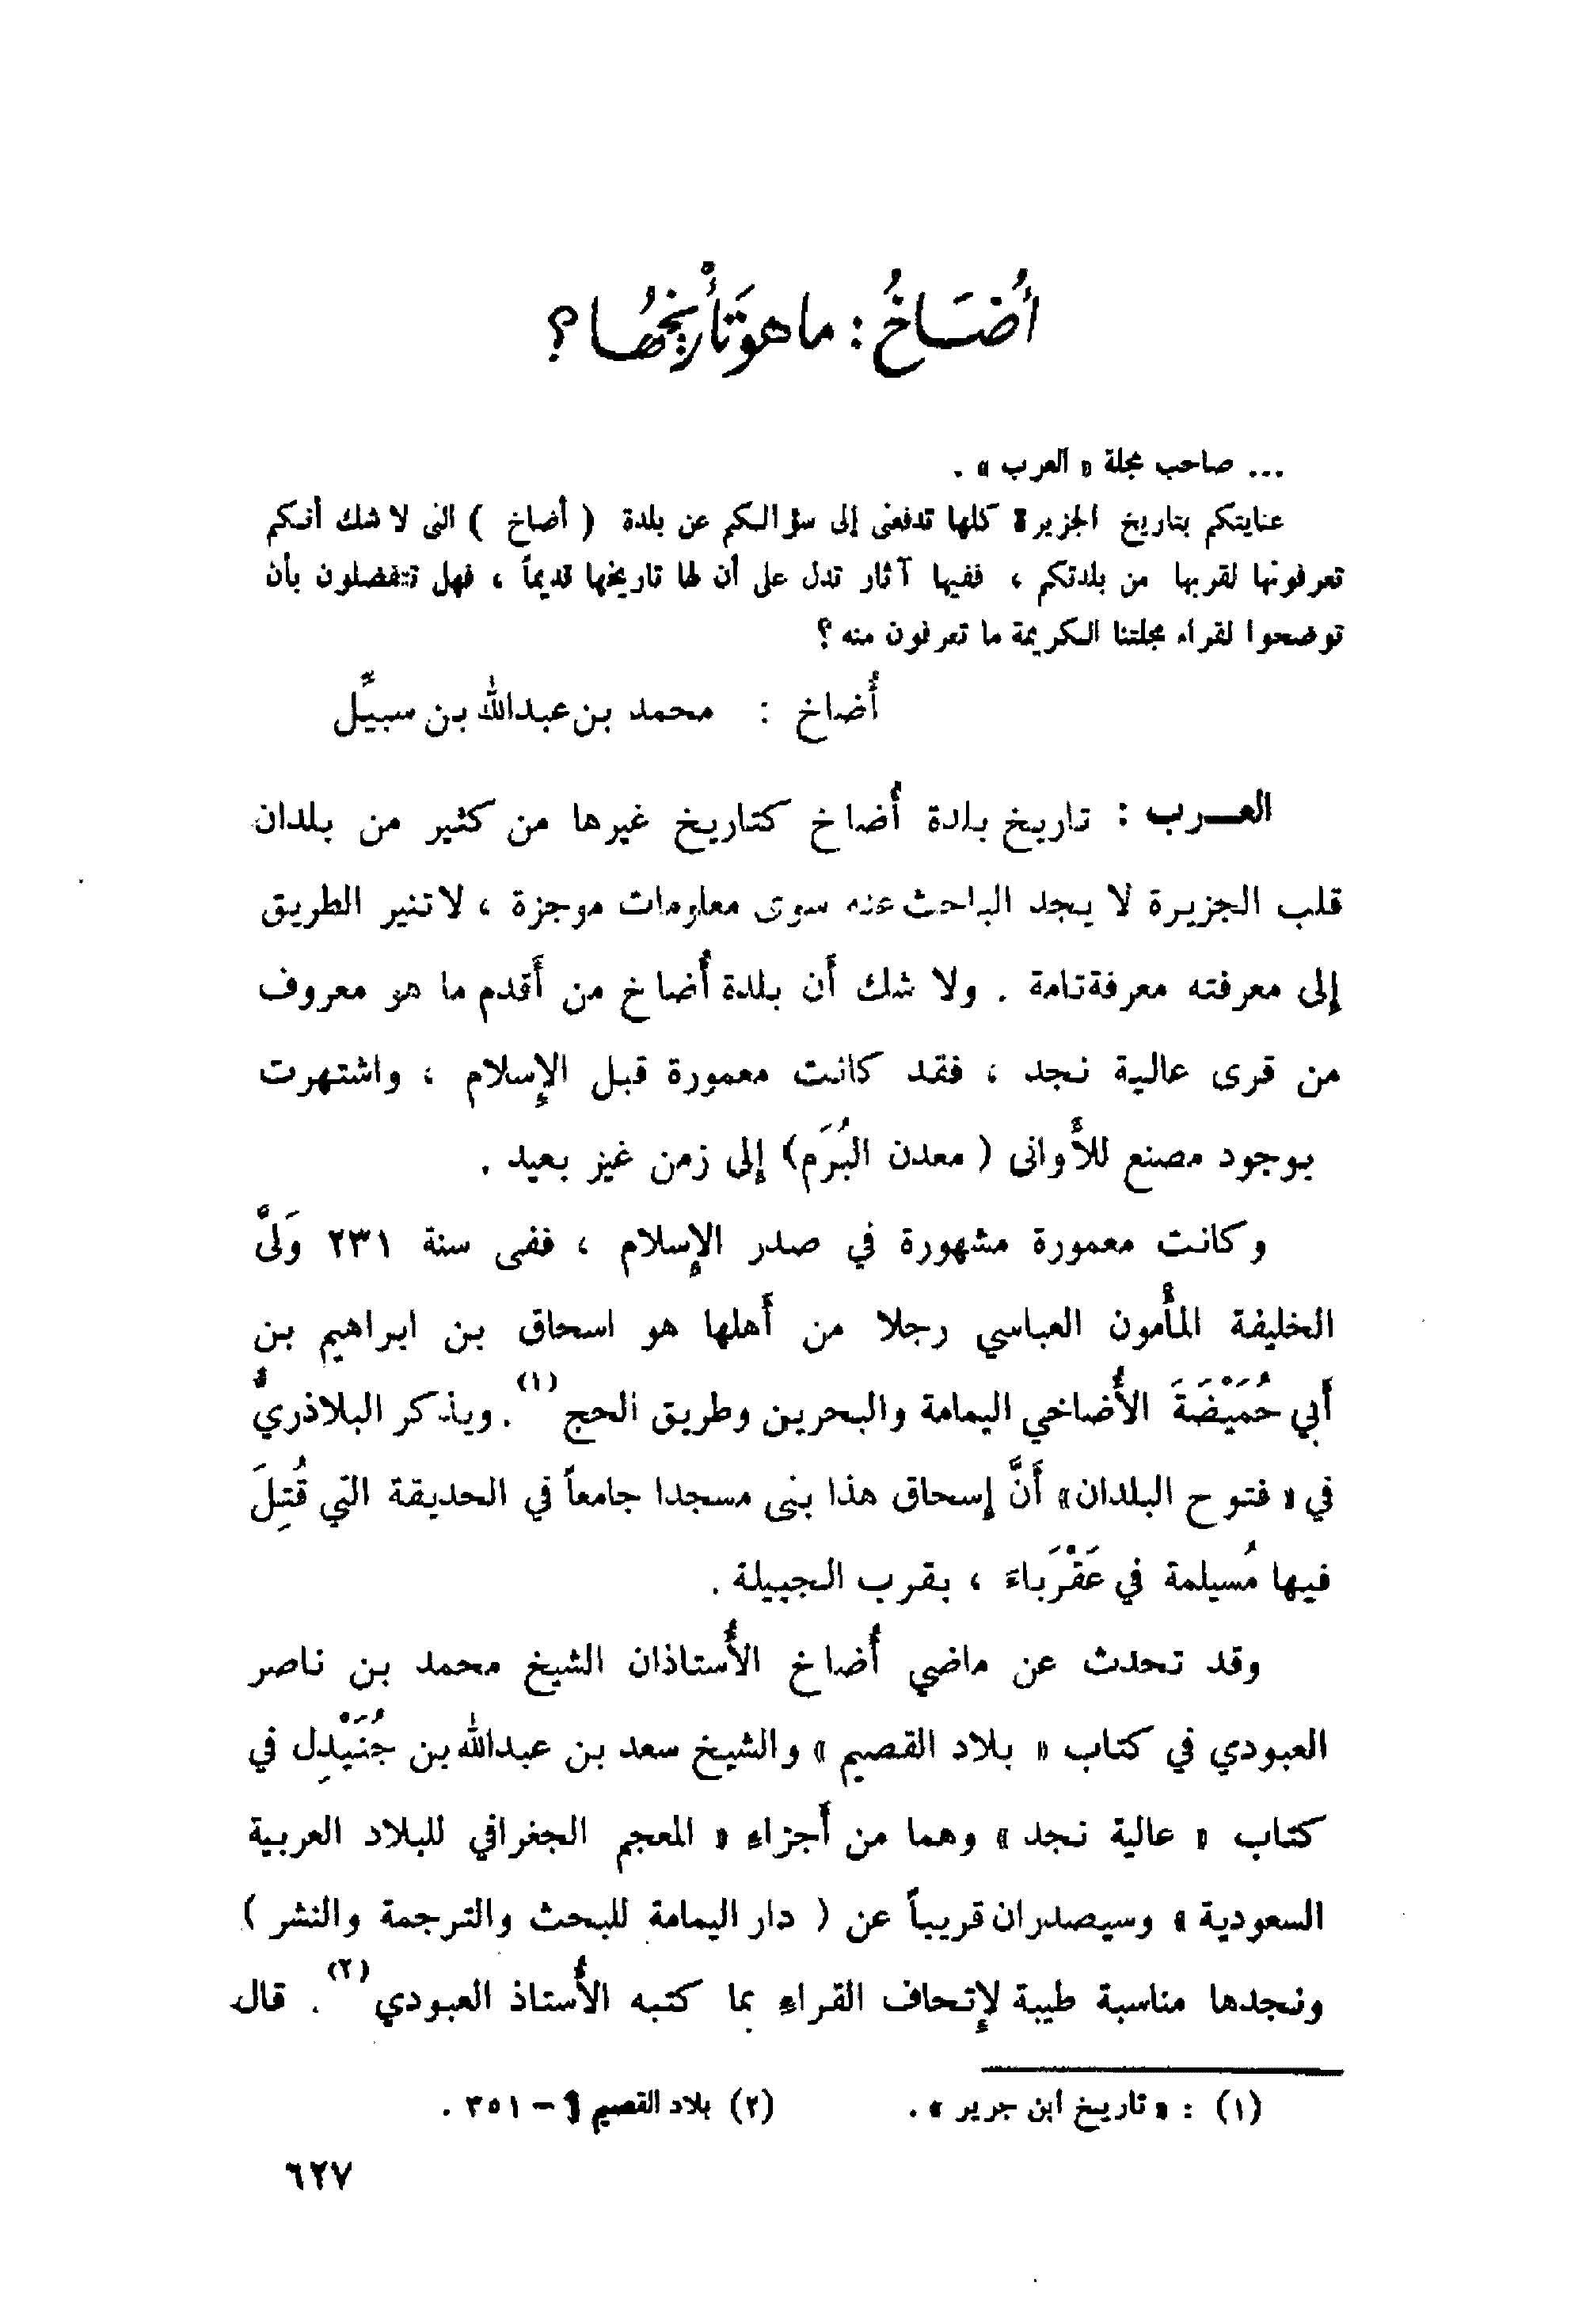 أُضَاخُ : ما هو تَأْريخُها ؟
... صاحب مجلة « العرب » .
عنايتكم بتاريخ الجزيرة كلها تدفعنى إلى سؤالكم عن بلدة ( أضاخ ) التى لا شك أنكم
تعرفونها لقربها من بلدتكم ، ففيها آثار تدل على أن لها تاريخها قديماً ، فهل تتفضلون بأن
توضحوا لقراء مجلتنا الكريمة ما تعرفون منه ؟
أُضاخ : محمد بن عبدالله بن سبيِّل
العرب : تاريخ بلدة أُضاخ كتاريخ غيرها من كثير من بلدان
قلب الجزيرة لا يجد الباحث عنه سوى معلومات موجزة ، لا تنير الطريق
إلى معرفته معرفة تامة . ولا شك أَن بلدة أُضاخ من أَقدم ما هو معروف
من قرى عالية نجد ، فقد كانت معمورة قبل الإِسلام ، واشتهرت
بوجود مصنع للأَوانى ( معدن البُرَم) إلى زمن غيز بعيد .
وكانت معمورة مشهورة في صدر الإِسلام ، ففى سنة ٢٣١ وَلَّى
الخليفة المأْمون العباسي رجلا من أَهلها هو اسحاق بن ابراهيم بن
أَبي حُمَيْضَةَ الأُضاخي اليمامة والبحرين وطريق الحج (١) . ويذكر البلاذريُّ
في « فتوح البلدان» أَنَّ إسحاق هذا بنى مسجدا جامعاً في الحديقة التي قُتِلَ
فيها مُسيلمة في عَقْرَباءَ ، بقرب الجبيلة .
وقد تحدث عن ماضي أُضاخ الأُستاذان الشيخ محمد بن ناصر
العبودي في كتاب « بلاد القصيم » والشيخ سعد بن عبدالله بن جُنَيْدِل في
كتاب « عالية نجد » وهما من أَجزاءِ « المعجم الجغرافي للبلاد العربية
السعودية » وسيصدران قريباً عن ( دار اليمامة للبحث والترجمة والنشر )
ونجدها مناسبة طيبة لإِتحاف القراءِ بما كتبه الأُستاذ العبودي (٢) . قال
(١) : « تاريخ ابن جرير » . (٢) بلاد القصيم - ٣٥١ .
٦٢٧